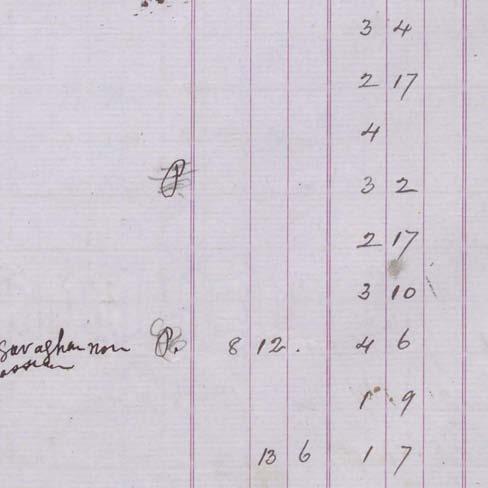 3 4
2 17
4
P 3 2
2 17
3 10
P. 8 12 . 4 6
1 9
13 6 1 7